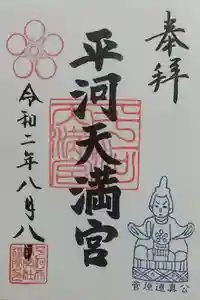 奉拝
平河天満宮
令和二年八月八日
菅原道真公